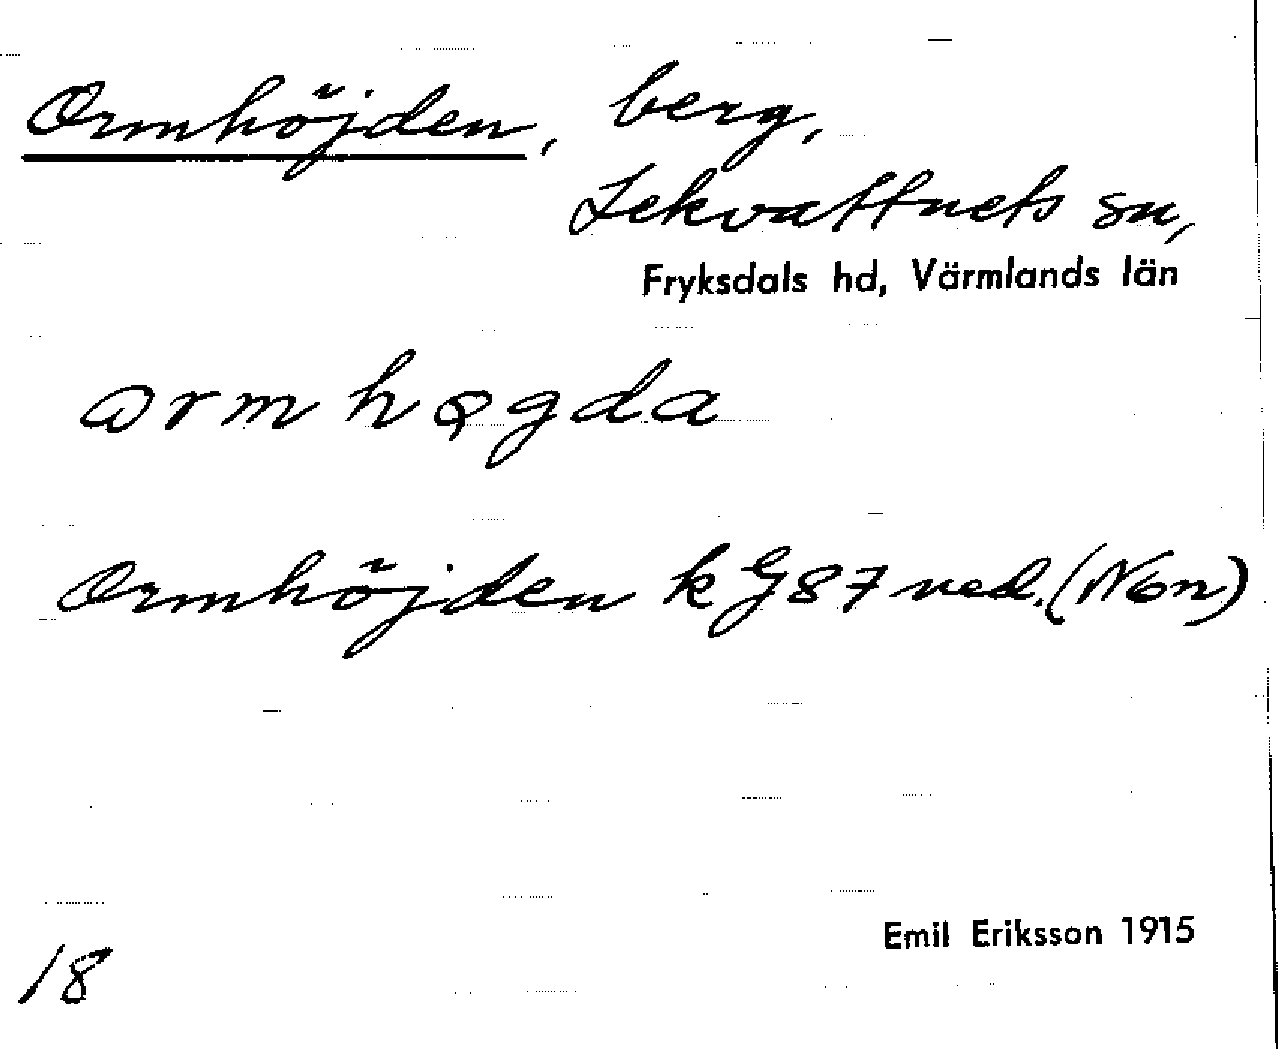 Ormhöjden, berg,
Lekvattnets sn,
Fryksdals hd, Värmlands län
ormhǫgda
Ormhöjden k G87 ned. (Non)
Emil Eriksson 1915
18